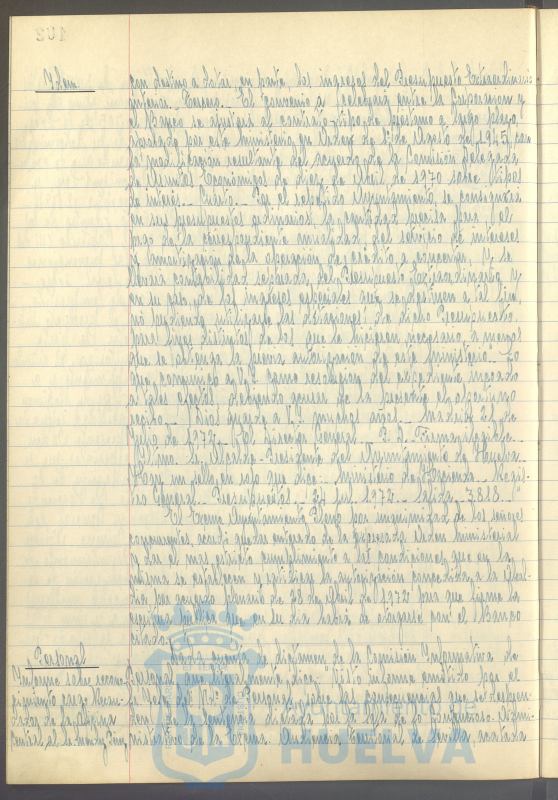 Idem.
con destino a dotar, en parte, los ingresos del Presupuesto Extraordinario
Tercero. El convenio a celebrar entre la Corporación y
el Banco se ajustará al contrato-tipo de préstamo a largo plazo,
aprobado por este Ministerio en Orden de 1º de Agosto de 1945, con
la modificación resultante del acuerdo de la Comisión Delegada
de Asuntos Económicos de diez de Abril de 1970 sobre tipos
de interés. Cuarto. Por el referido Ayuntamiento, se consignará
en sus presupuestos ordinarios la cantidad precisa para el
pago de la correspondiente anualidad del servicio de intereses
y amortización de la operación de crédito a concertar, y se
llevará contabilidad separada, del Presupuesto Extraordinario y
en su caso, de los ingresos especiales que se destinen a tal fin,
no pudiendo utilizarse las dotaciones de dicho Presupuesto
para fines distintos de los que lo hicieron necesario a menos
que se obtenga la previa autorización de este Ministerio. Lo
que comunico a V.I. como resolución del expediente incoado
a tales efectos debiendo acusar de la presente el oportuno
recibo. Dios guarde a V.I. muchos años. Madrid 21 de
Julio de 1972. El Director General. P. D. Firma ilegible.
Iltmo. Sr. Alcalde-Presidente del Ayuntamiento de Huelva.
Hay un sello en rojo que dice: Ministerio de Hacienda. Regis-
tro General. Presupuestos. 24 Jul. 1972. Salida 3818."
El Excmo Ayuntamiento Pleno por unanimidad de los señores
concurrentes, acordó quedar enterado de la expresada Orden ministerial
y dar el más estricto cumplimiento a las condiciones que en la
misma se establecen y ratificar la autorización concedida a la Alcal-
día por acuerdo plenario de 28 de Abril de 1972 para que firme la
escritura pública que en su día habrá de otorgarse con el Banco
citado.
Personal
Informe sobre recono-
cimiento para
de la
Dada cuenta de dictamen de la Comisión Informativa de
Personal que literalmente dice: "Visto informe emitido por el
Sr. Jefe del Ndo. de Personal, sobre las consecuencias que se despren-
den de la sentencia dictada por la Sala de lo Contencioso-Admi-
nistrativo de la Excma. Audiencia Territorial de Sevilla,
Ayuntamiento de
HUELVA